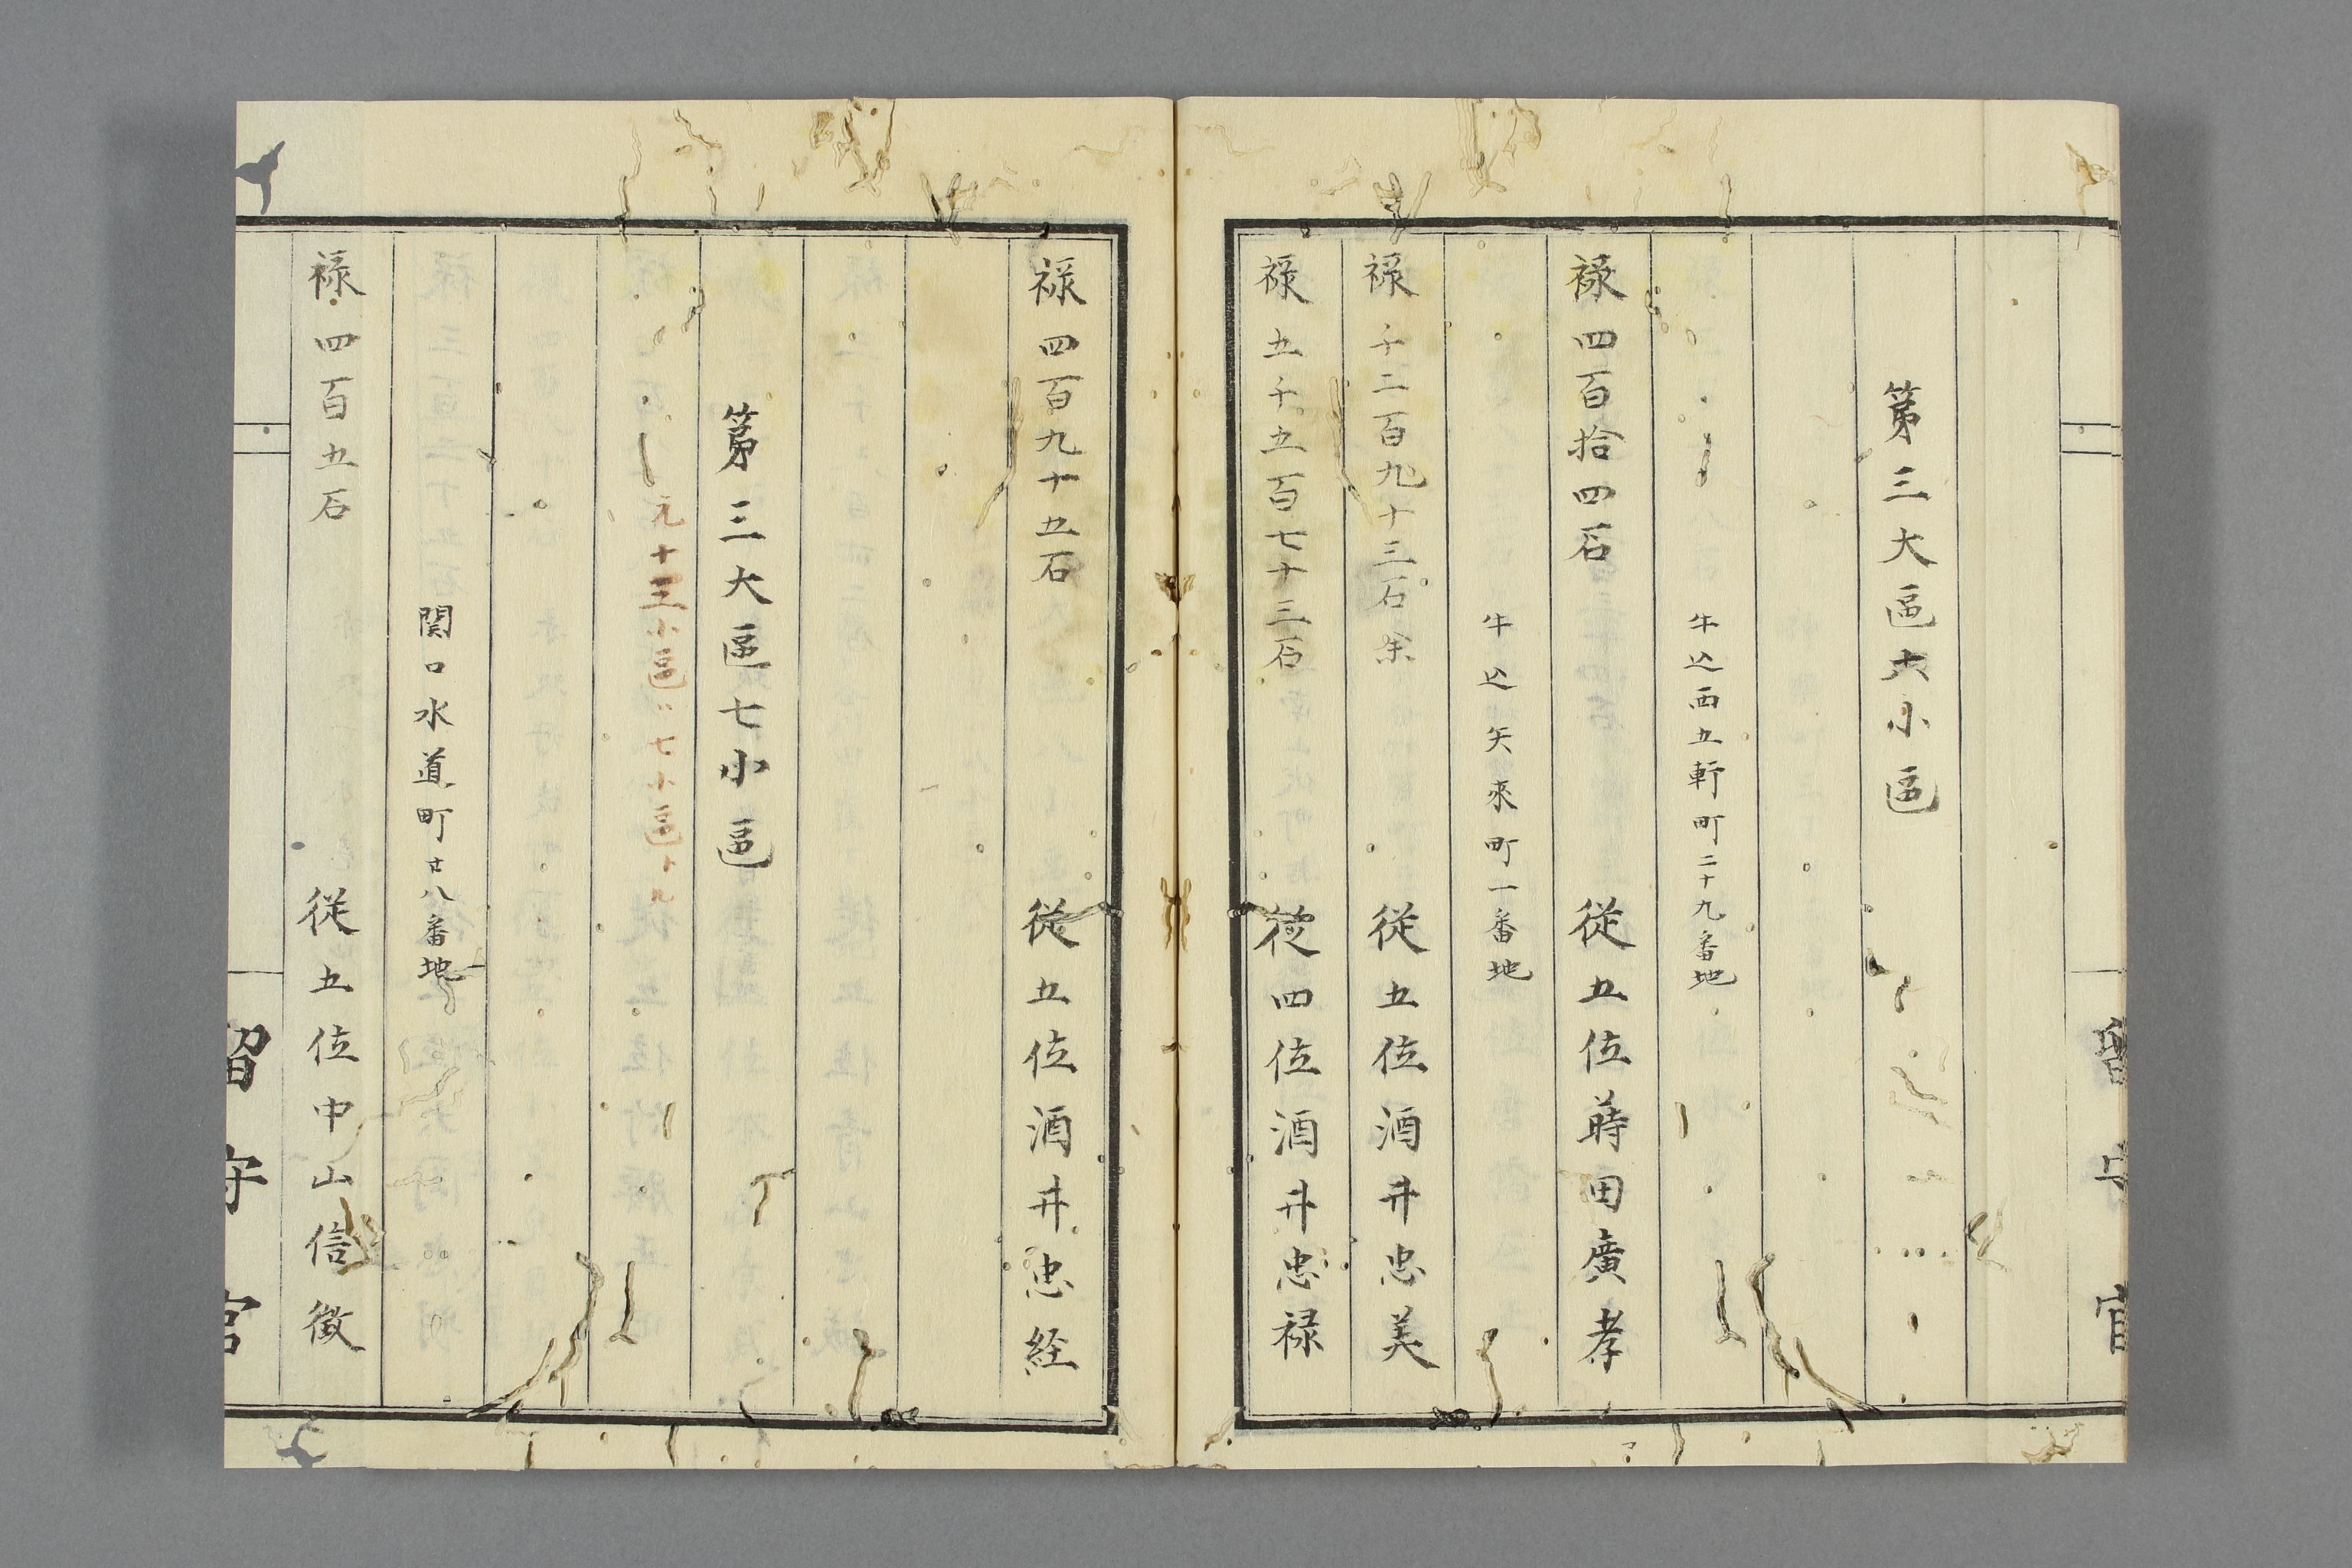 第三大區六小區
牛込西五軒町二十九番地
禄四百拾四石 従五位蒔田廣孝
牛込矢来町一番地
禄千二百九十三石余 従五位酒井忠美
禄五千五百七十三石 従四位酒井忠禄
禄四百九十五石 従五位酒井忠経
第三大區七小區
元十三小區ニ七小區ト九
関口水道町廿八番地
禄四百五石 従五位中山信徴
留守官